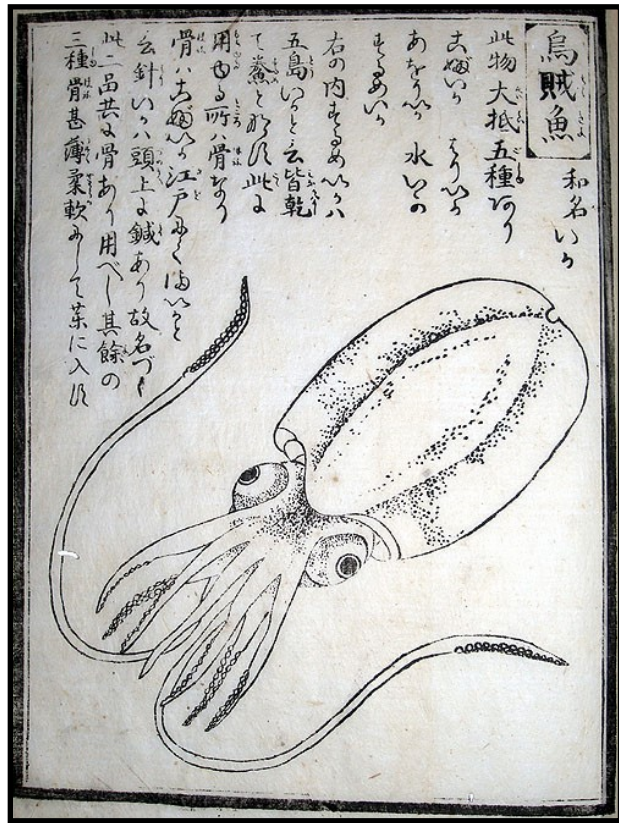 烏賊魚
和名いか
此物大抵五種あり
こぶいか はりいか
あをりいか 水いか
するめいか
右の内するめいかハ
五島いかと云皆乾
て鯗と形す此に
用ゆる所ハ骨なり
骨ハこぶいか江戸にてまいかと
云針いかハ頭上に鍼あり故名づく
此二品共に骨あり用べし其餘の
三種骨甚薄柔軟にして薬に入ず